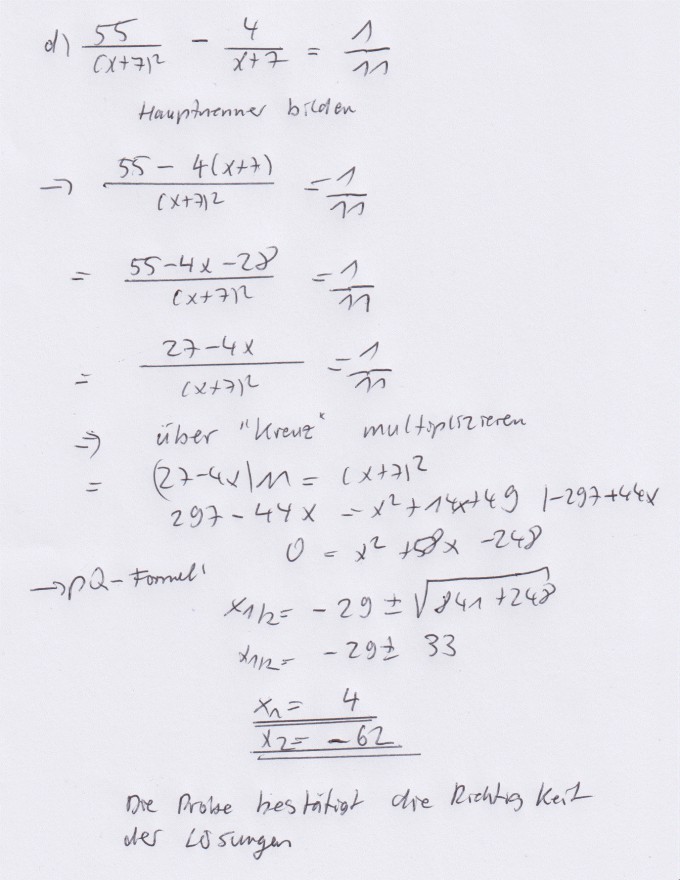 d) 55/(x+7)² - 4/(x+7) = 1/11
Hauptnenner bilden
→ (55 - 4(x+7))/(x+7)² = 1/11
= (55-4x-28)/(x+7)² = 1/11
= (27-4x)/(x+7)² = 1/11
⇒ über "Kreuz" multiplizieren
= (27-4x)11 = (x+7)²
297 - 44x = x² + 14x + 49 |-297+44x
0 = x² + 58x - 248
→ pQ-Formel:
x1/2 = - 29 ± √(841 + 248)
x1/2 = - 29 ± 33
x1 = 4
x2 = - 62
Die Probe bestätigt die Richtigkeit
der Lösungen